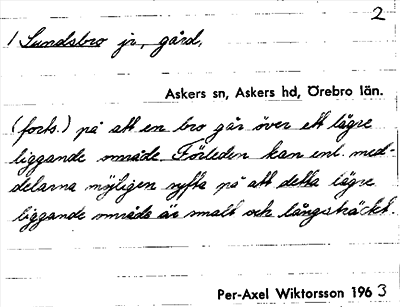 2
1 Sundsbro jr, gård,
Askers sn, Askers hd, Örebro län.
(forts.) på att en bro går över ett lägre
liggande område. Förleden kan enl. med-
delarna möjligen syfta på att detta lägre
liggande område är smalt och långsträckt.
Per-Axel Wiktorsson 1963